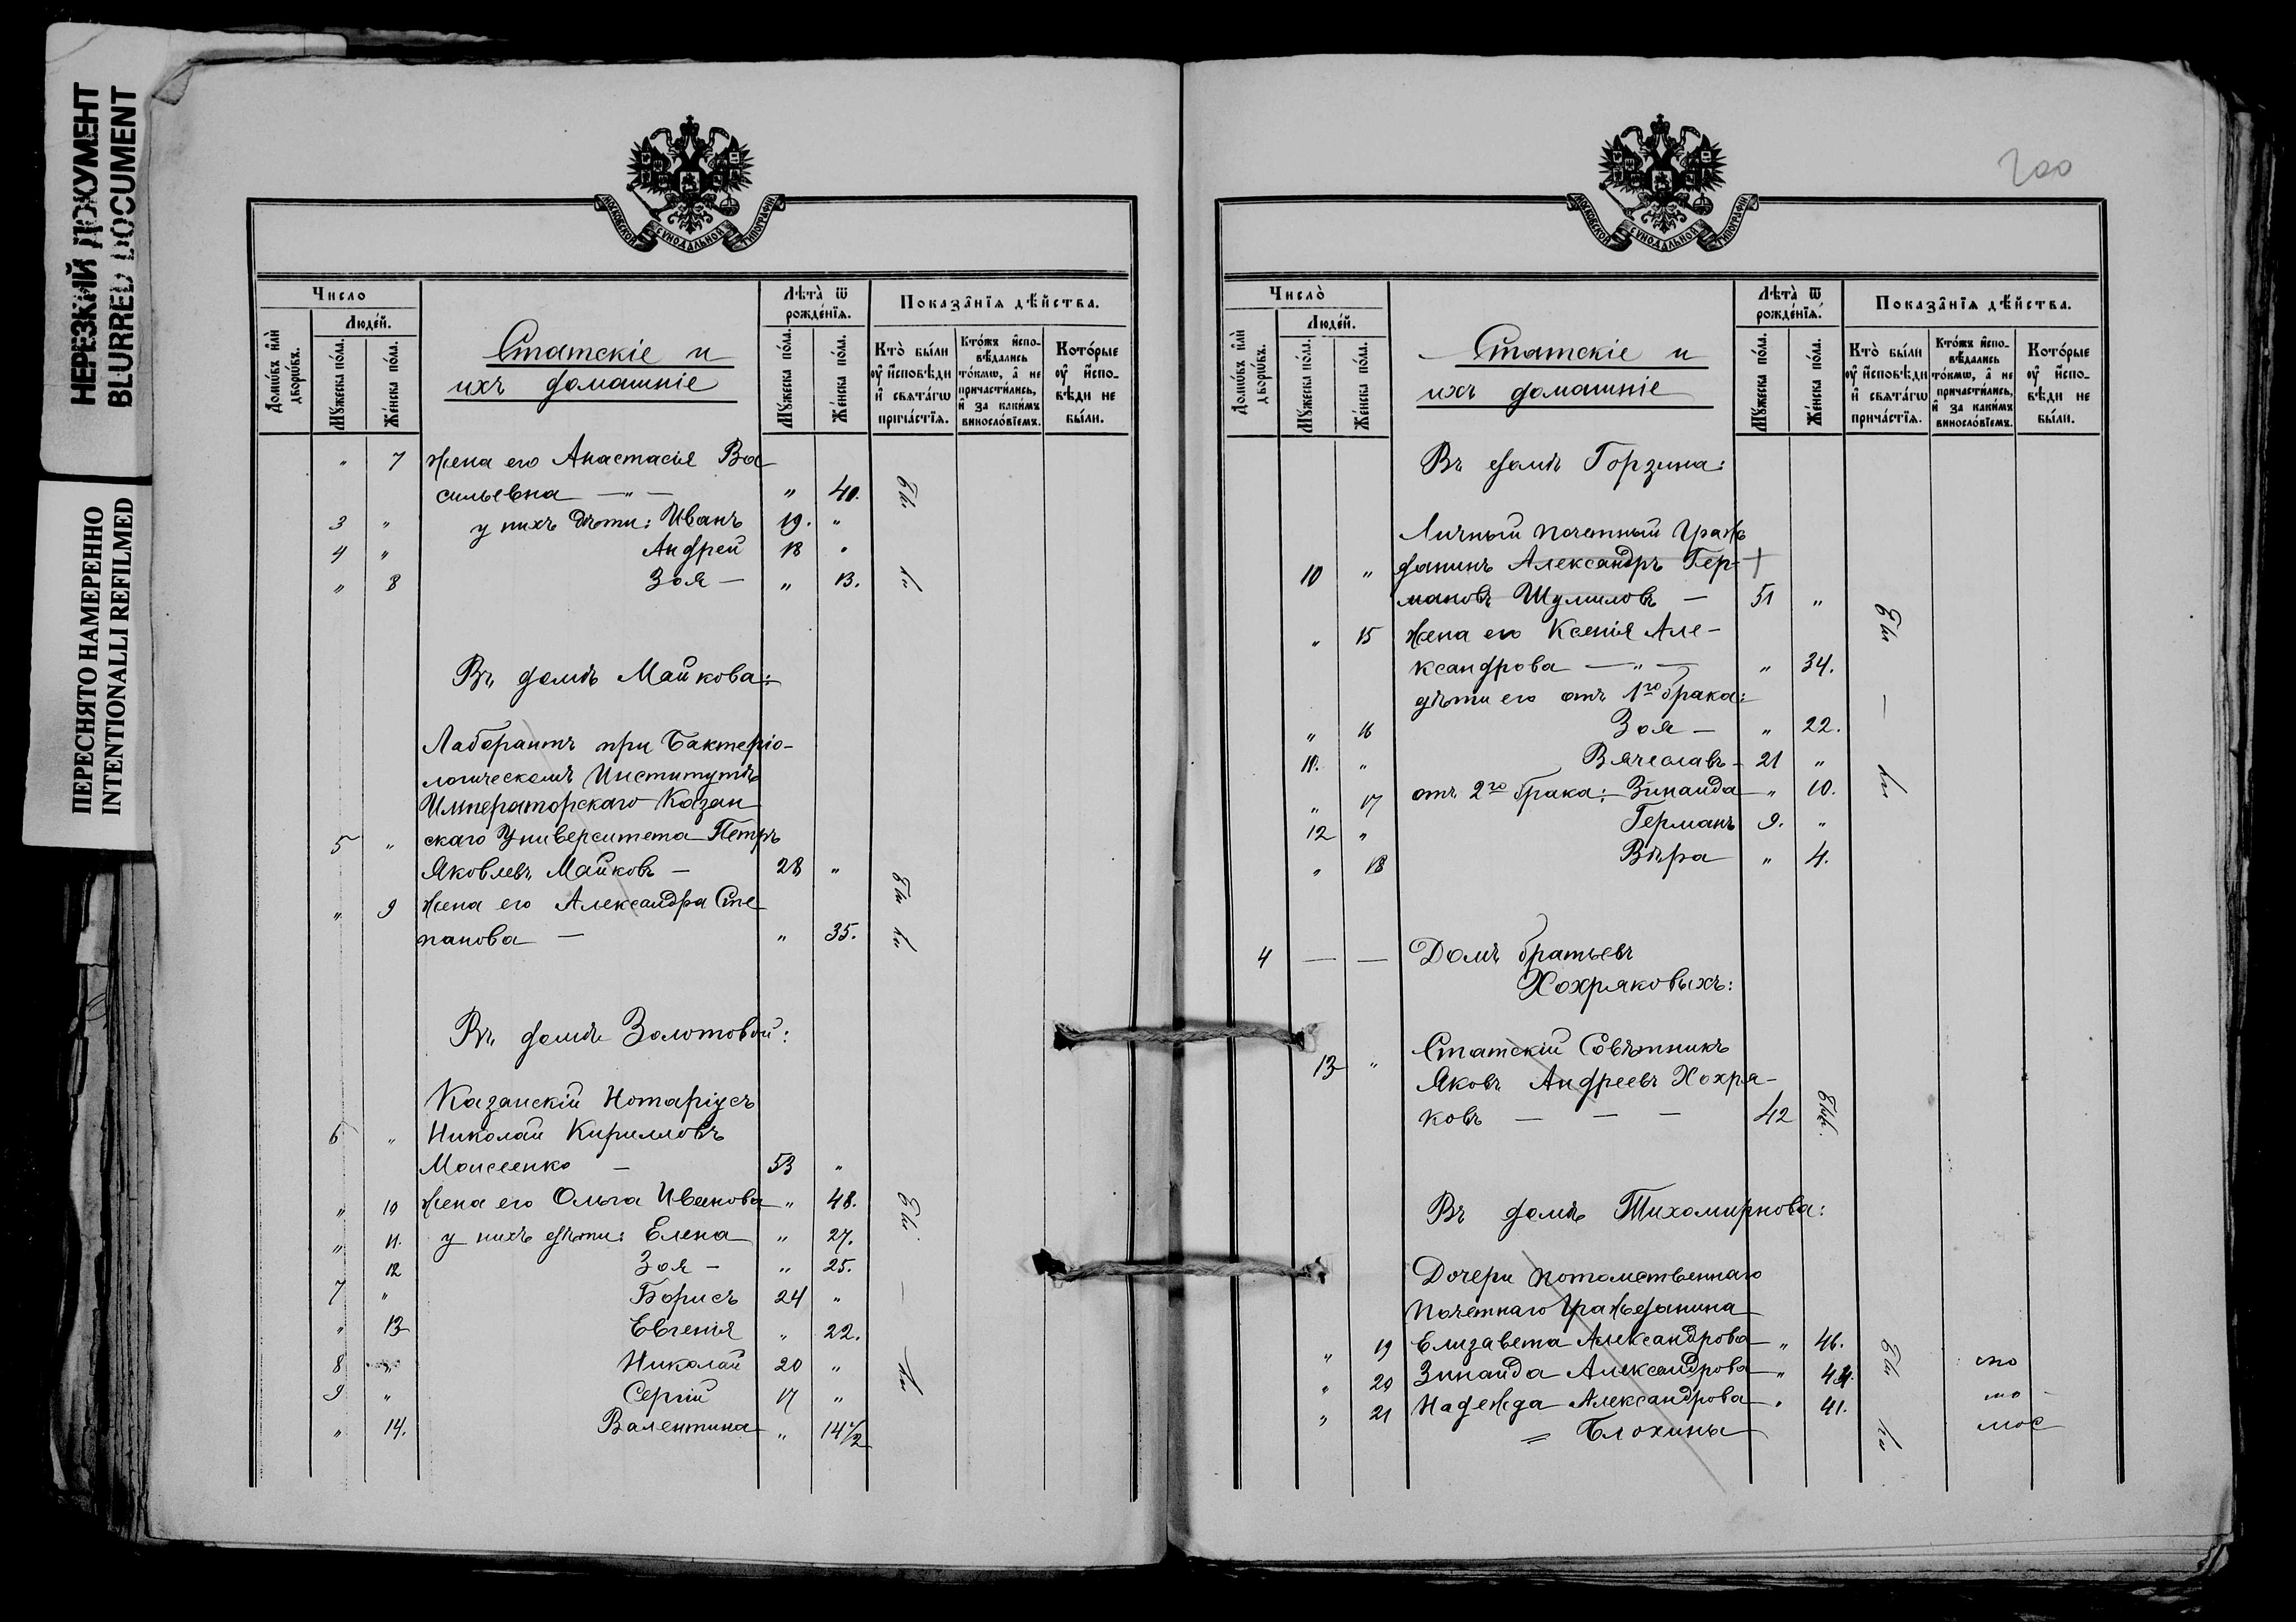 НЕРЕЗКИЙ ДОКУМЕНТ
BLURRED DOCUMENT
ПЕРЕСНЯТО НАМЕРЕННО
INTENTIONALLI REFILMED
МОСКОВСКОЙ СѴНОДАЛЬНОЙ ТИПОГРАФІИ
Число
Люде́й.
Домѡ́въ и҆лѝ дворѡ́въ.
Мꙋ́жеска по́ла.
Же́нска по́ла.
Статскіе и
ихъ домашніе
Лѣ́та ѿ рожде́нїѧ.
Мꙋ́жеска по́ла.
Же́нска по́ла.
Показа̑нїѧ дѣ́йства.
Кто̀ бы́ли ᲂу҆ и҆сповѣ́ди и҆ свѧта́гѡ прича́стїѧ.
Кто́жъ и҆спо-вѣ́дались то́кмѡ, а҆ не причасти́лись, и҆ за каки́мъ виносло́вїемъ.
Кото́рые ᲂу҆ и҆спо-вѣ́ди не бы́ли.
" 7 жена его Анастасія Ва
сильевна — " — " 40.
3 " у нихъ дѣти: Иванъ 19. "
4 " Андрей 18 "
" 8 Зоя — " 13.
Въ домѣ Майкова:
Лаборантъ при Бактеріо-
логическомъ Институтѣ
Императорскаго Казан
5 " скаго Университета Петръ
Яковлевъ Майковъ — 28 "
" 9 жена его Александра Сте
панова — " 35.
Въ домѣ Золотовой:
Казанскій Нотаріусъ
6 " Николай Кирилловъ
Моисеенко — 53 "
" 10 жена его Ольга Иванова " 48.
" 11. у нихъ дѣти: Елена " 27.
12 Зоя — " 25.
7 " Борисъ 24 "
" 13 Евгенія " 22.
8 " Николай 20 "
9 " Сергій 17 "
" 14. Валентина " 14 1/2
200
МОСКОВСКОЙ СѴНОДАЛЬНОЙ ТИПОГРАФІИ
Число̀
Люде́й.
Домѡ́въ и҆лѝ дворѡ́въ.
Мꙋ́жеска по́ла.
Же́нска по́ла.
Статскіе и
ихъ домашніе
Лѣ́та ѿ рожде́нїѧ.
Мꙋ́жеска по́ла.
Же́нска по́ла.
Показа̑нїѧ дѣ́йства.
Кто̀ бы́ли ᲂу҆ и҆сповѣ́ди и҆ свѧта́гѡ прича́стїѧ.
Кто́жъ и҆спо-вѣ́дались то́кмѡ, а҆ не причасти́лись, и҆ за каки́мъ виносло́вїемъ.
Кото́рые ᲂу҆ и҆спо-вѣ́ди не бы́ли.
Въ домѣ Горзина:
Личный почетный Граж
10 " данинъ Александръ Гер- +
мановъ Шумиловъ — 51 "
" 15 жена его Ксенія Але-
ксандрова — " — " 34.
дѣти его отъ 1го брака:
" 16 Зоя — " 22.
11. " Вячеславъ — 21 "
" 17 отъ 2го брака: Зинаида " 10.
12 " Германъ 9. "
" 18 Вѣра " 4.
4 — — Домъ братьевъ
Хохряковыхъ:
13 " Статскій Совѣтникъ
Яковъ Андреевъ Хохря-
ковъ — — — 42
Въ домѣ Тихомирнова:
Дочери потомственнаго
почетнаго Гражданина
" 19 Елизавета Александрова " 46.
" 20 Зинаида Александрова "
" 21 Надежда Александрова " 41.
= Блохины